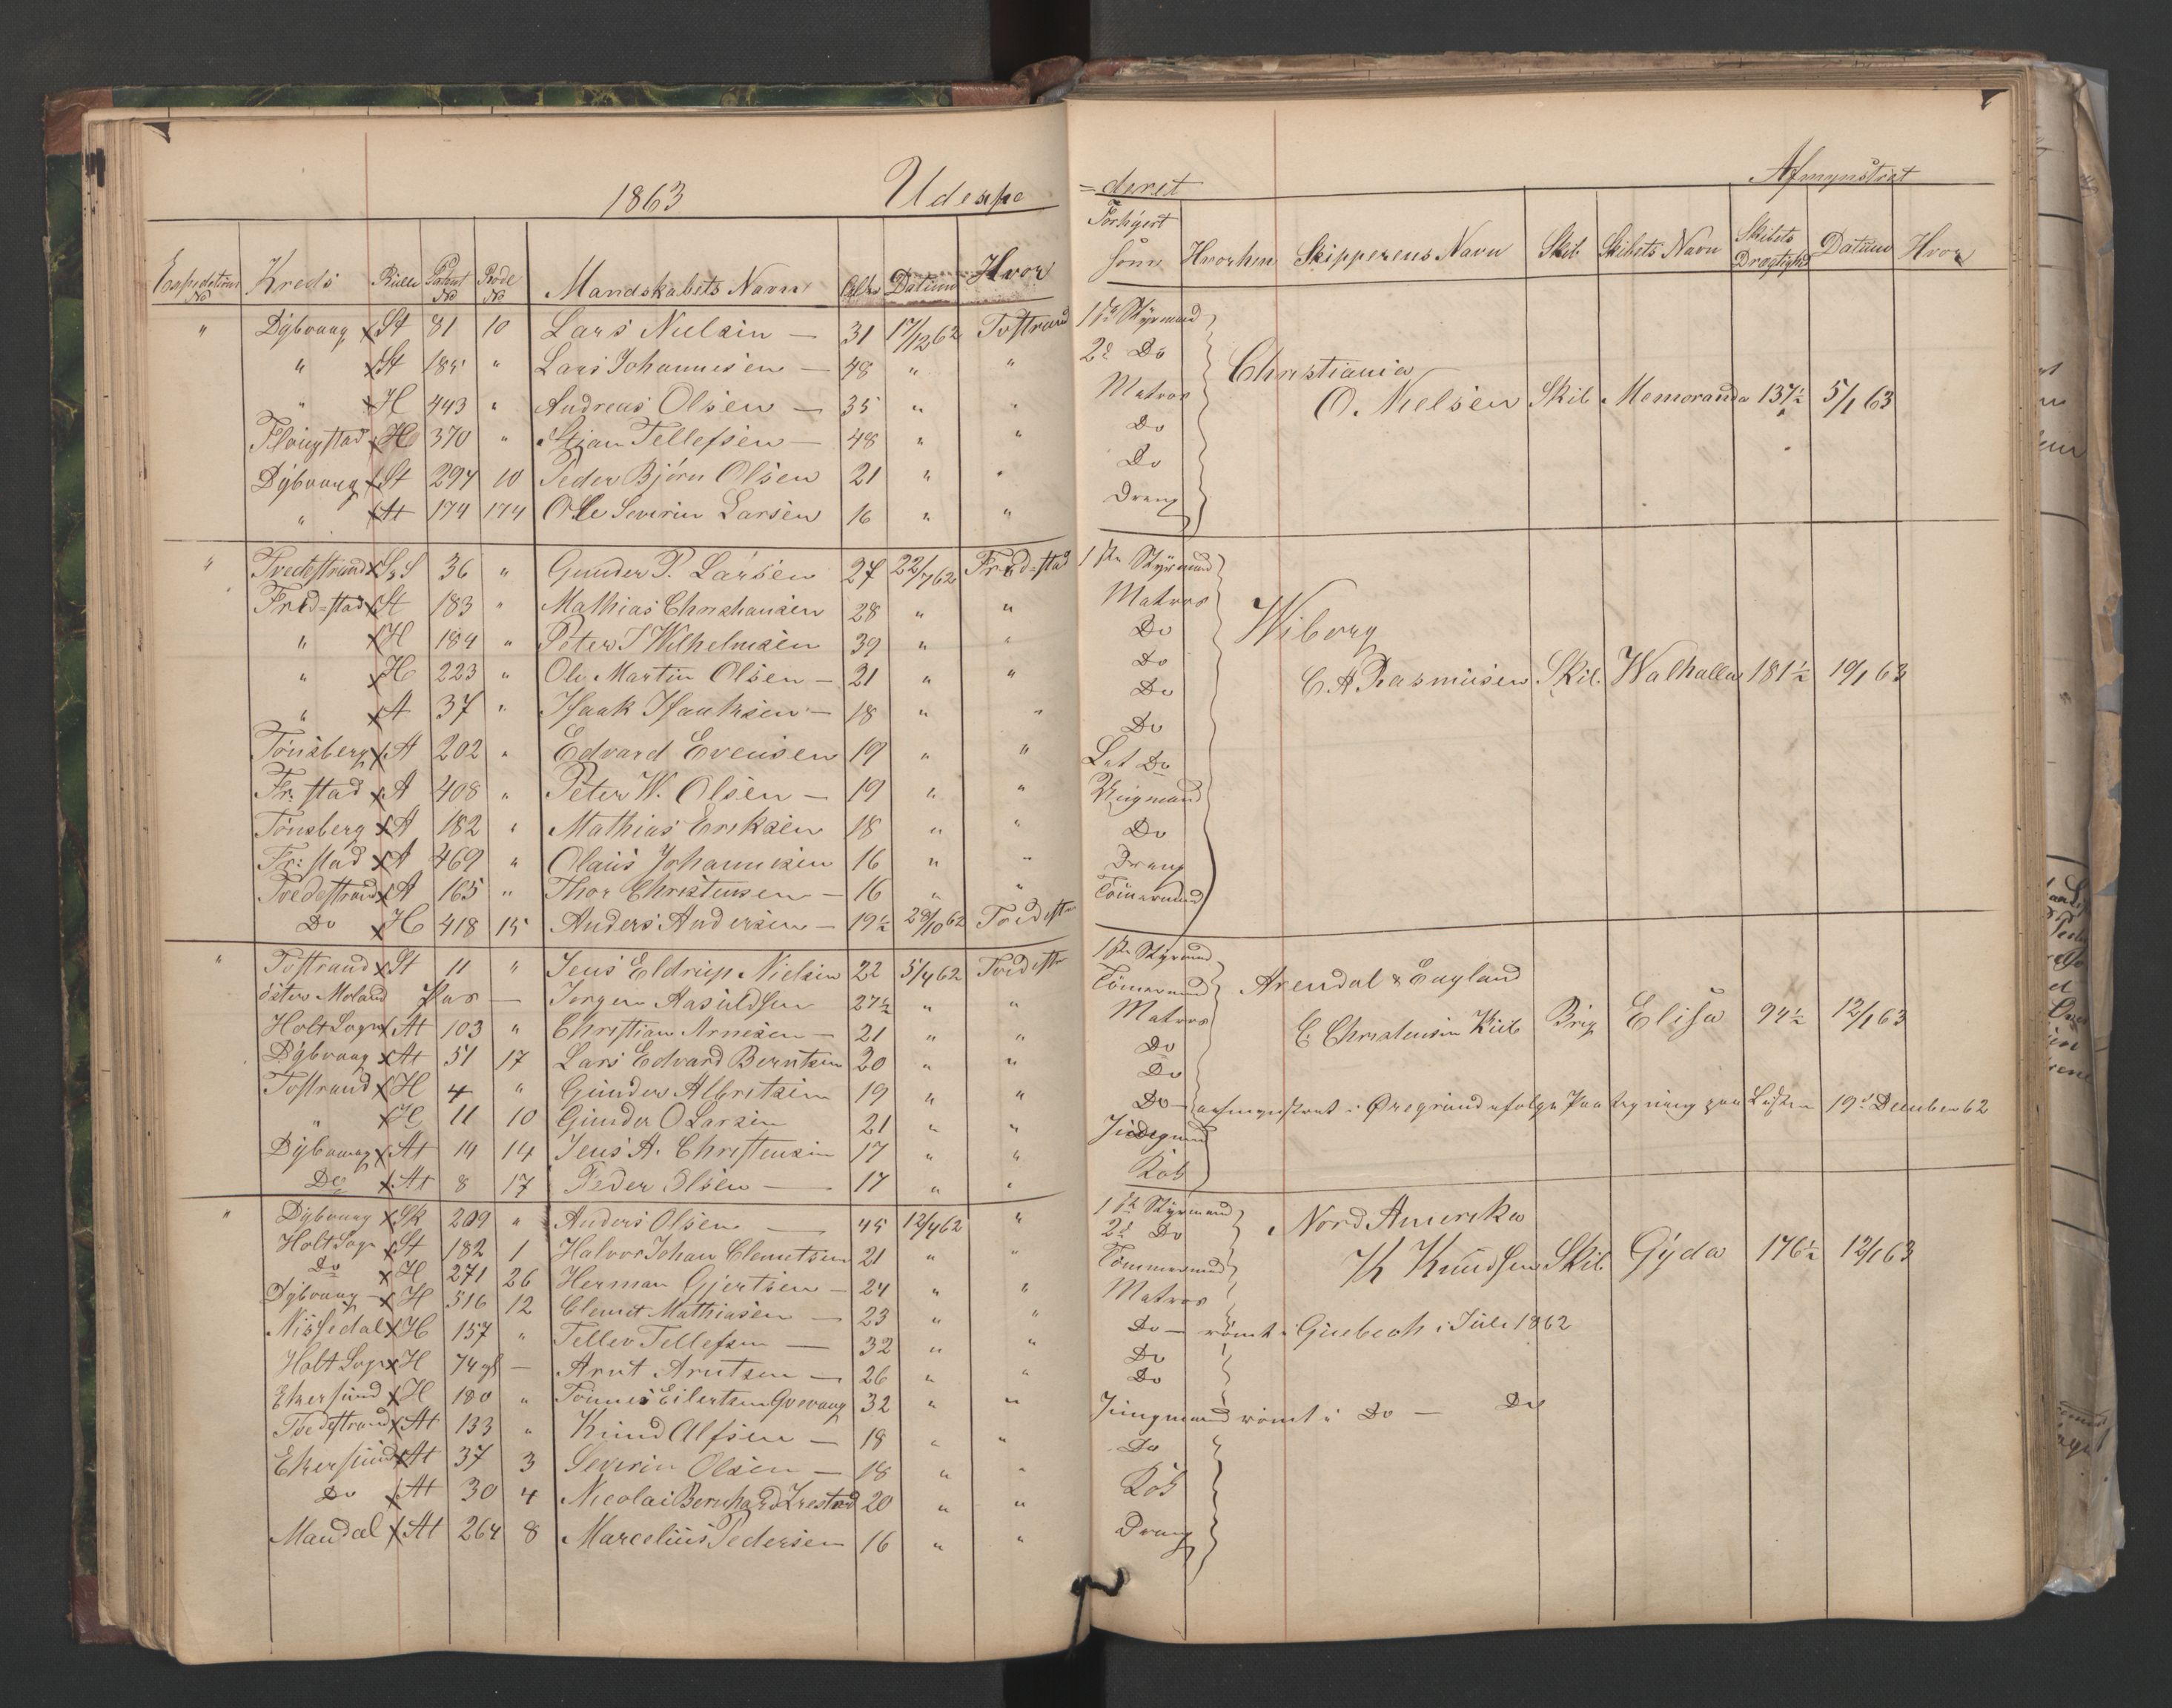 1863 Udexpe
Expeditions No Kreds Rulle Patent No Rode No Mandskabets Navn Alder Datum Hvor
" Dybvaag x St 81 10 Lars Nielsen — 31 17/12 62 Tvstrand
" x St 185 " Lars Johannesen — 48 " "
" x H 443 " Andreas Olsen — 35 " "
x H 370 " Stian Tellefsen — 48 " "
Dybvaag x St 294 10 Peder Björn Olsen 21 " "
" x At 174 174 Ole Severin Larsen 16 " "
" Tvedestrand x S 36 " Gunder P. Larsen 27 22/7 62 Fred=stad
Fred=stad x St 183 " Mathias Christiansen 28 " "
" x H 184 " Peter T Wilhelmsen 39 " "
" x H 223 " Ole Martin Olsen — 21 " "
" x A 37 " Isaak Isaaksen — 18 " "
Tönsberg x A 202 " Edvard Evensen 19 " "
Fr: stad x A 408 " Peter W. Olsen — 19 " "
Tönsberg x A 182 " Mathias Eriksen 18 " "
Fr: stad x A 469 " Olaus Johannesen 16 " "
Tvedestrand x A 165 " Thor Christensen — 16 " "
Do x H 418 15 Anders Andersen — 19½ 29/10 62 Tvedestr
" Tvstrand x St 11 " Jens Eldrup Nielsen 22 5/4 62 Tvedestr
öster Moland Pas — Jörgen Aasuldsen 27½ " "
Holt Sogn x At 103 " Christian Arnesen — 21 " "
Dybvaag x At 51 17 Lars Edvard Berntsen 20 " "
Tvstrand x H 4 " Gunder Albretsen 19 " "
" x H 11 10 Gunder O Larsen 21 " "
Dybvaag x At 14 14 Jens A. Christensen 17 " "
Do x At 8 17 Peder Olsen — 17 " "
" Dybvaag x Sk 209 " Anders Olsen — 45 12/4 62 "
Holt Sogn x St 182 1 Halvor Johan Clemetsen 21 " "
Do x H 271 26 Herman Gjertsen — 24 " "
Dybvaag — x H 516 12 Clemet Mathiasen — 23 " "
Nissedal x H 157 " Tellev Tellefsen — 32 " "
Holt Sogn x H 74 — Arnt Arntsen — 26 " "
Ekersund x H 180 " Tönnes Eilertsen 32 " "
Tvedestrand x At 133 " Knud Alfsen — 18 " "
Ekersund x At 37 3 Severin Olsen — 18 " "
Do x At 30 4 Nicolai Bernhard 20 " "
Mandal x At 264 8 Marcelius Pedersen 16 " "
=deret Afmynstret
Forhyret som Hvorhen Skipperens Navn Skib Skibets Navn Skibets Drægtighed Datum Hvor
1ste Styrmand
2d Do
Christiania
Matros
O. Nielsen Skib Memoranda 137½ 5/1 63
Do
Do
Dreng
1ste Styrmand
Matros
Wiborg
Do
Do
C. A Rasmussen Skib Walhalla 181½ 19/1 63
Do
Do
Let Do
Jungmand
Do
Dreng
Tömmermand
1ste Styrmand
Arendal & England
Tömermand
Matros
C. Christensen Skib Brig Elisa 94½ 12/1 63
Do
Do
Do — afmynstret i Öregrund ifölge Paategning paa Listen 19d December 62
Jungmand
Kok
1ste Styrmand
Nord Amerika
2d Do
K Knudsen Skib Gyda 176½ 12/1 63
Tömmermand
Matros
Do — römt i Quebech i Juli 1862
Do
Do
Jungmand römt i Do — Do
Do
Kok
Dreng